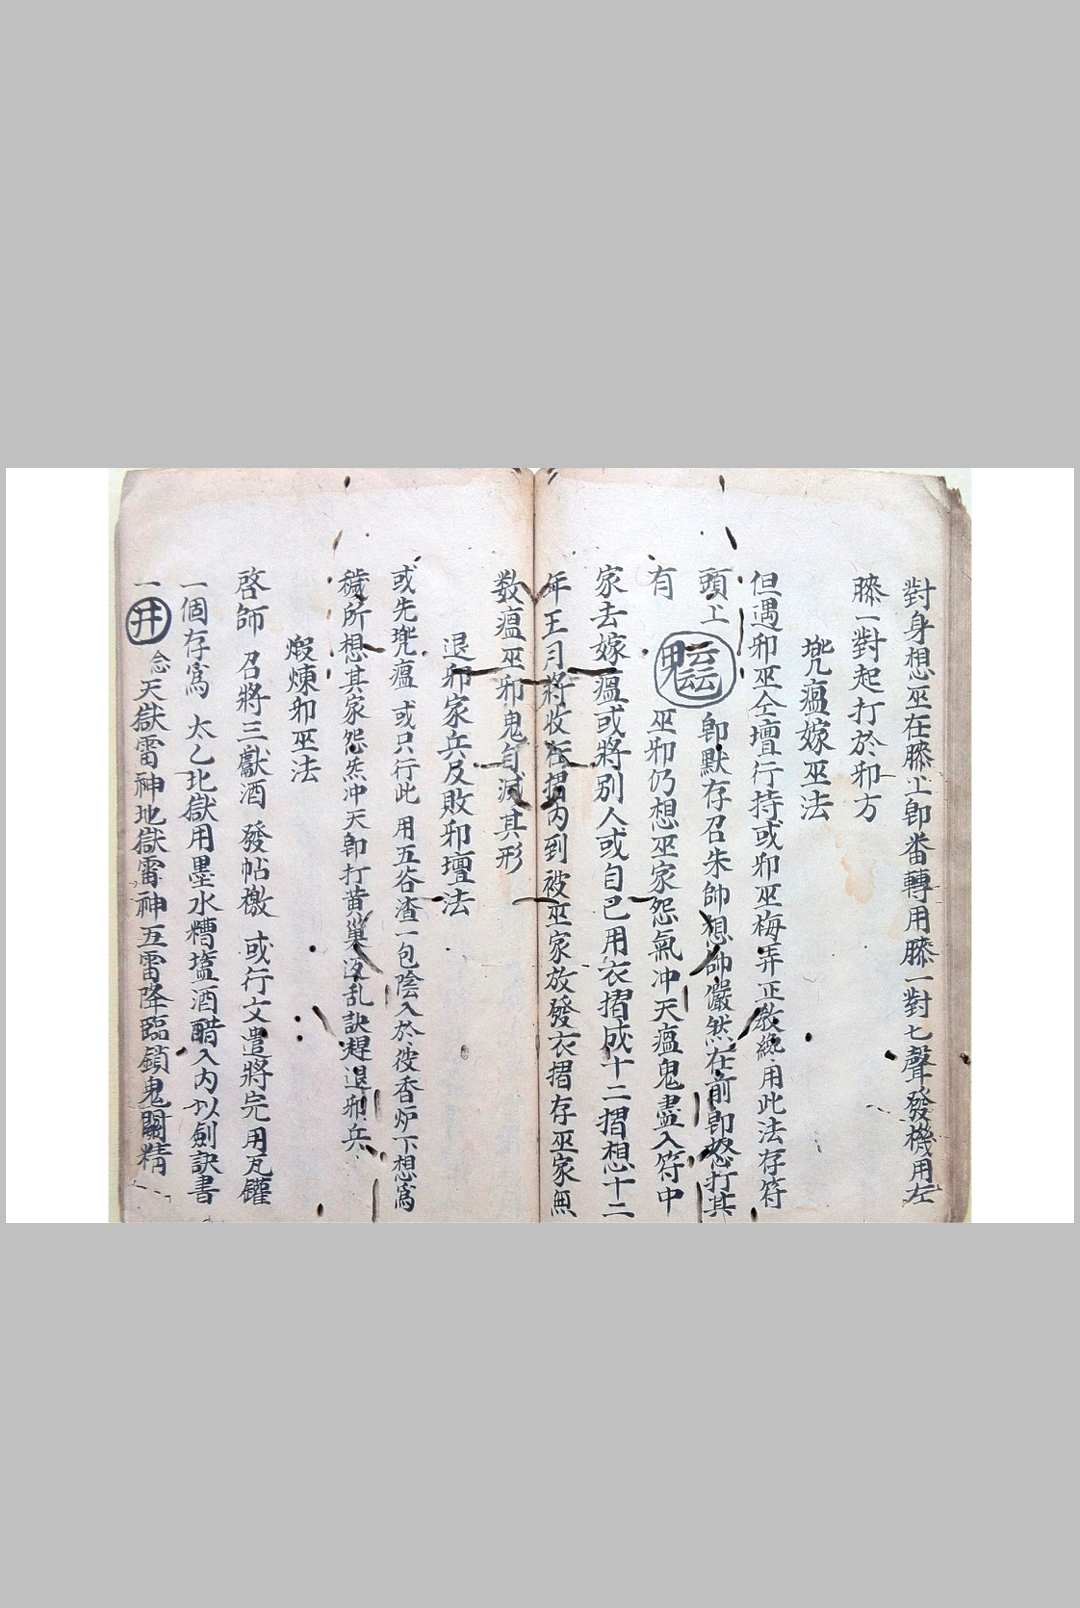 對身想巫在膝上即番轉用膝一對七聲發機用左
膝一對起打於邪方
兠瘟嫁巫法
但遇邪巫仝壇行持或邪巫梅弄正教総用此法存符
頭上 即默存召朱帥想帥儼然在前即怒打其
有 巫邪仍想巫家怨氣冲天瘟鬼盡入符中
家去嫁瘟或將別人或自己用衣摺成十二摺想十二
年王月將收在摺内到被巫家放發衣摺存巫家無
数瘟巫邪鬼自滅其形
退邪家兵反敗邪壇法
或先兠瘟 或只行此 用五谷渣一包陰入於彼香炉下想爲
穢所想其家怨炁冲天即打黄巢返乱訣趕退邪兵
煅煉邪巫法
啓師 召將三獻酒 發帖檄 或行文遣將完用瓦鑵
一個存爲 太乙北獄用墨水糟塩酒醋入内以劍訣書
一井 念天獄雷神地獄雷神五雷降臨鎖鬼關精